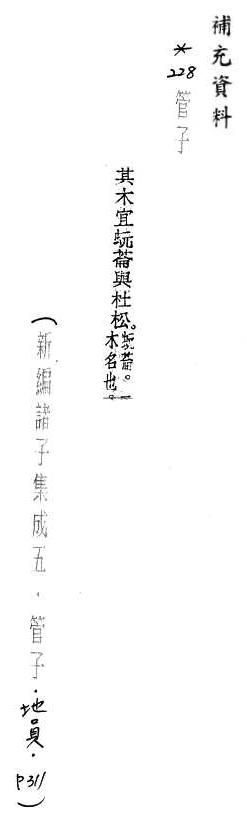 補充資料
*228 管子
其木宜蚖菕與杜松。蚖菕。木名也。
（新編諸子集成五．管子．地員．P311）